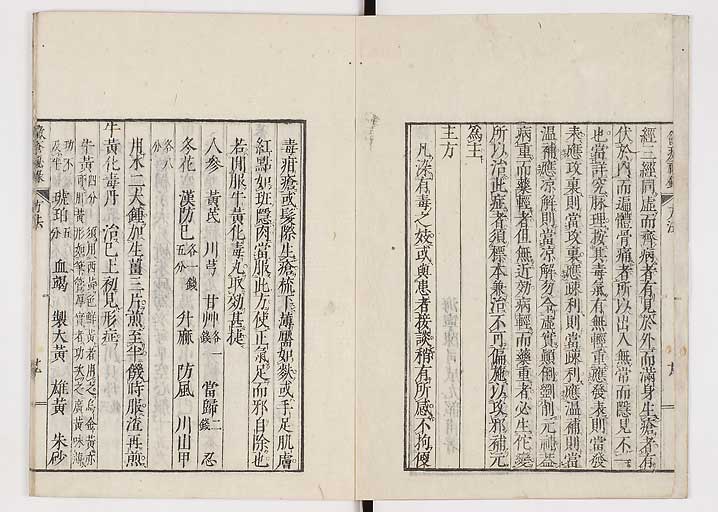 經三經同虛而齊病者有見於外而滿身生瘡者有
伏於內而遍體骨痛者所以出入無常而隱見不一
也當詳究脉理按其毒氣有無輕重應發表則當發
表應攻裏則當攻裏應疎利則當疎利應溫補則當
溫補應凉解則當凉解勿令虛實顛倒劉削元禮葢
病重而藥輕者但無近効病輕而藥重者必生他變
所以治此症者須標本兼治不可偏施以攻邪補元
為主
主方
凡染有毒之妓或與患者接談稍有所感不拘便
毒疳瘡或髮際生瘡梳下薄靨如麩或手足肌膚
紅點如斑隱肉當服此方使正氣足而邪自除也
若間服牛黃化毒丸取効甚捷
人參 黃芪 川芎 甘艸各一錢 當歸二錢 忍
冬花 漢防巳各一錢五分 升麻 防風 川山甲
各八分
用水二大鍾加生薑三片煎至半饑時服渣再煎
牛黃化毒丹 治巳上初見形症
牛黃四分 須用西黃色鮮黃者用之烏金黃亦
功不及牛 琥珀五分 血竭 製大黃 雄黃 朱砂